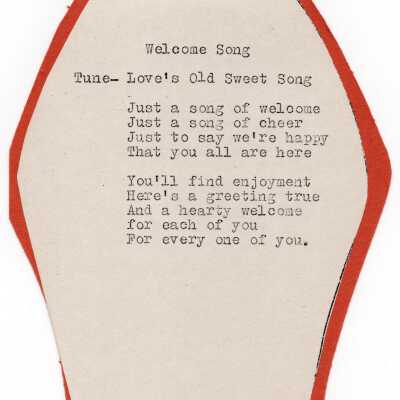 Welcome Song
Tune- Love's Old Sweet Song
Just a song of welcome
Just a song of cheer
Just to say we're happy
That you all are here
You'll find enjoyment
Here's a greeting true
And a hearty welcome
for each of you
For every one of you.